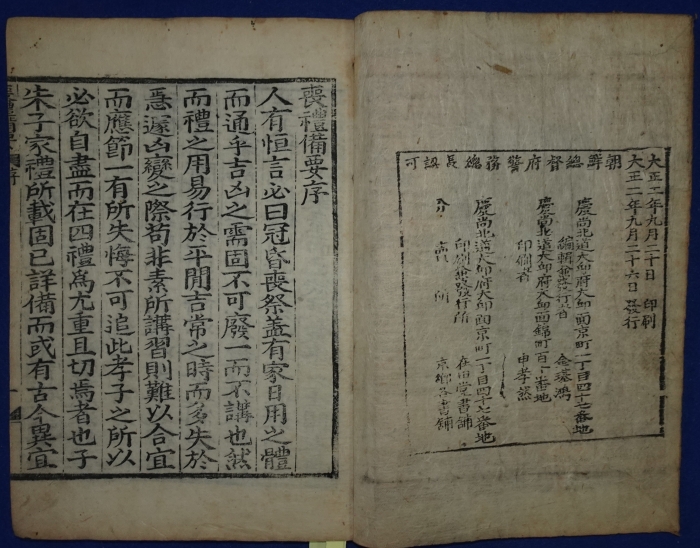 大正二年九月二十日 印刷
大正二年九月二十六日 發行
朝鮮總督府警務總長認可
慶尚北道大邱府大邱面京町一丁目四十七番地
編輯兼發行者 金璂鴻
慶尚北道大邱府大邱面錦町百 番地
印刷者 申孝
慶尚北道大邱府大邱面京町一丁目四十七番地
印刷兼發行所 在田堂書鋪
分 賣 所 京鄉各書鋪
喪禮備要序
人有恒言必曰冠昏喪祭盖有家日用之體
而通乎吉凶之需固不可廢一而不講也然
而禮之用易行於平閒吉常之時而多失於
急遽凶變之際苟非素所講習則難以合宜
而應節一有所失悔不可追此孝子之所以
必欲自盡而在四禮爲尤重且切焉者也子
朱子家禮所載固已詳備而或有古今異宜